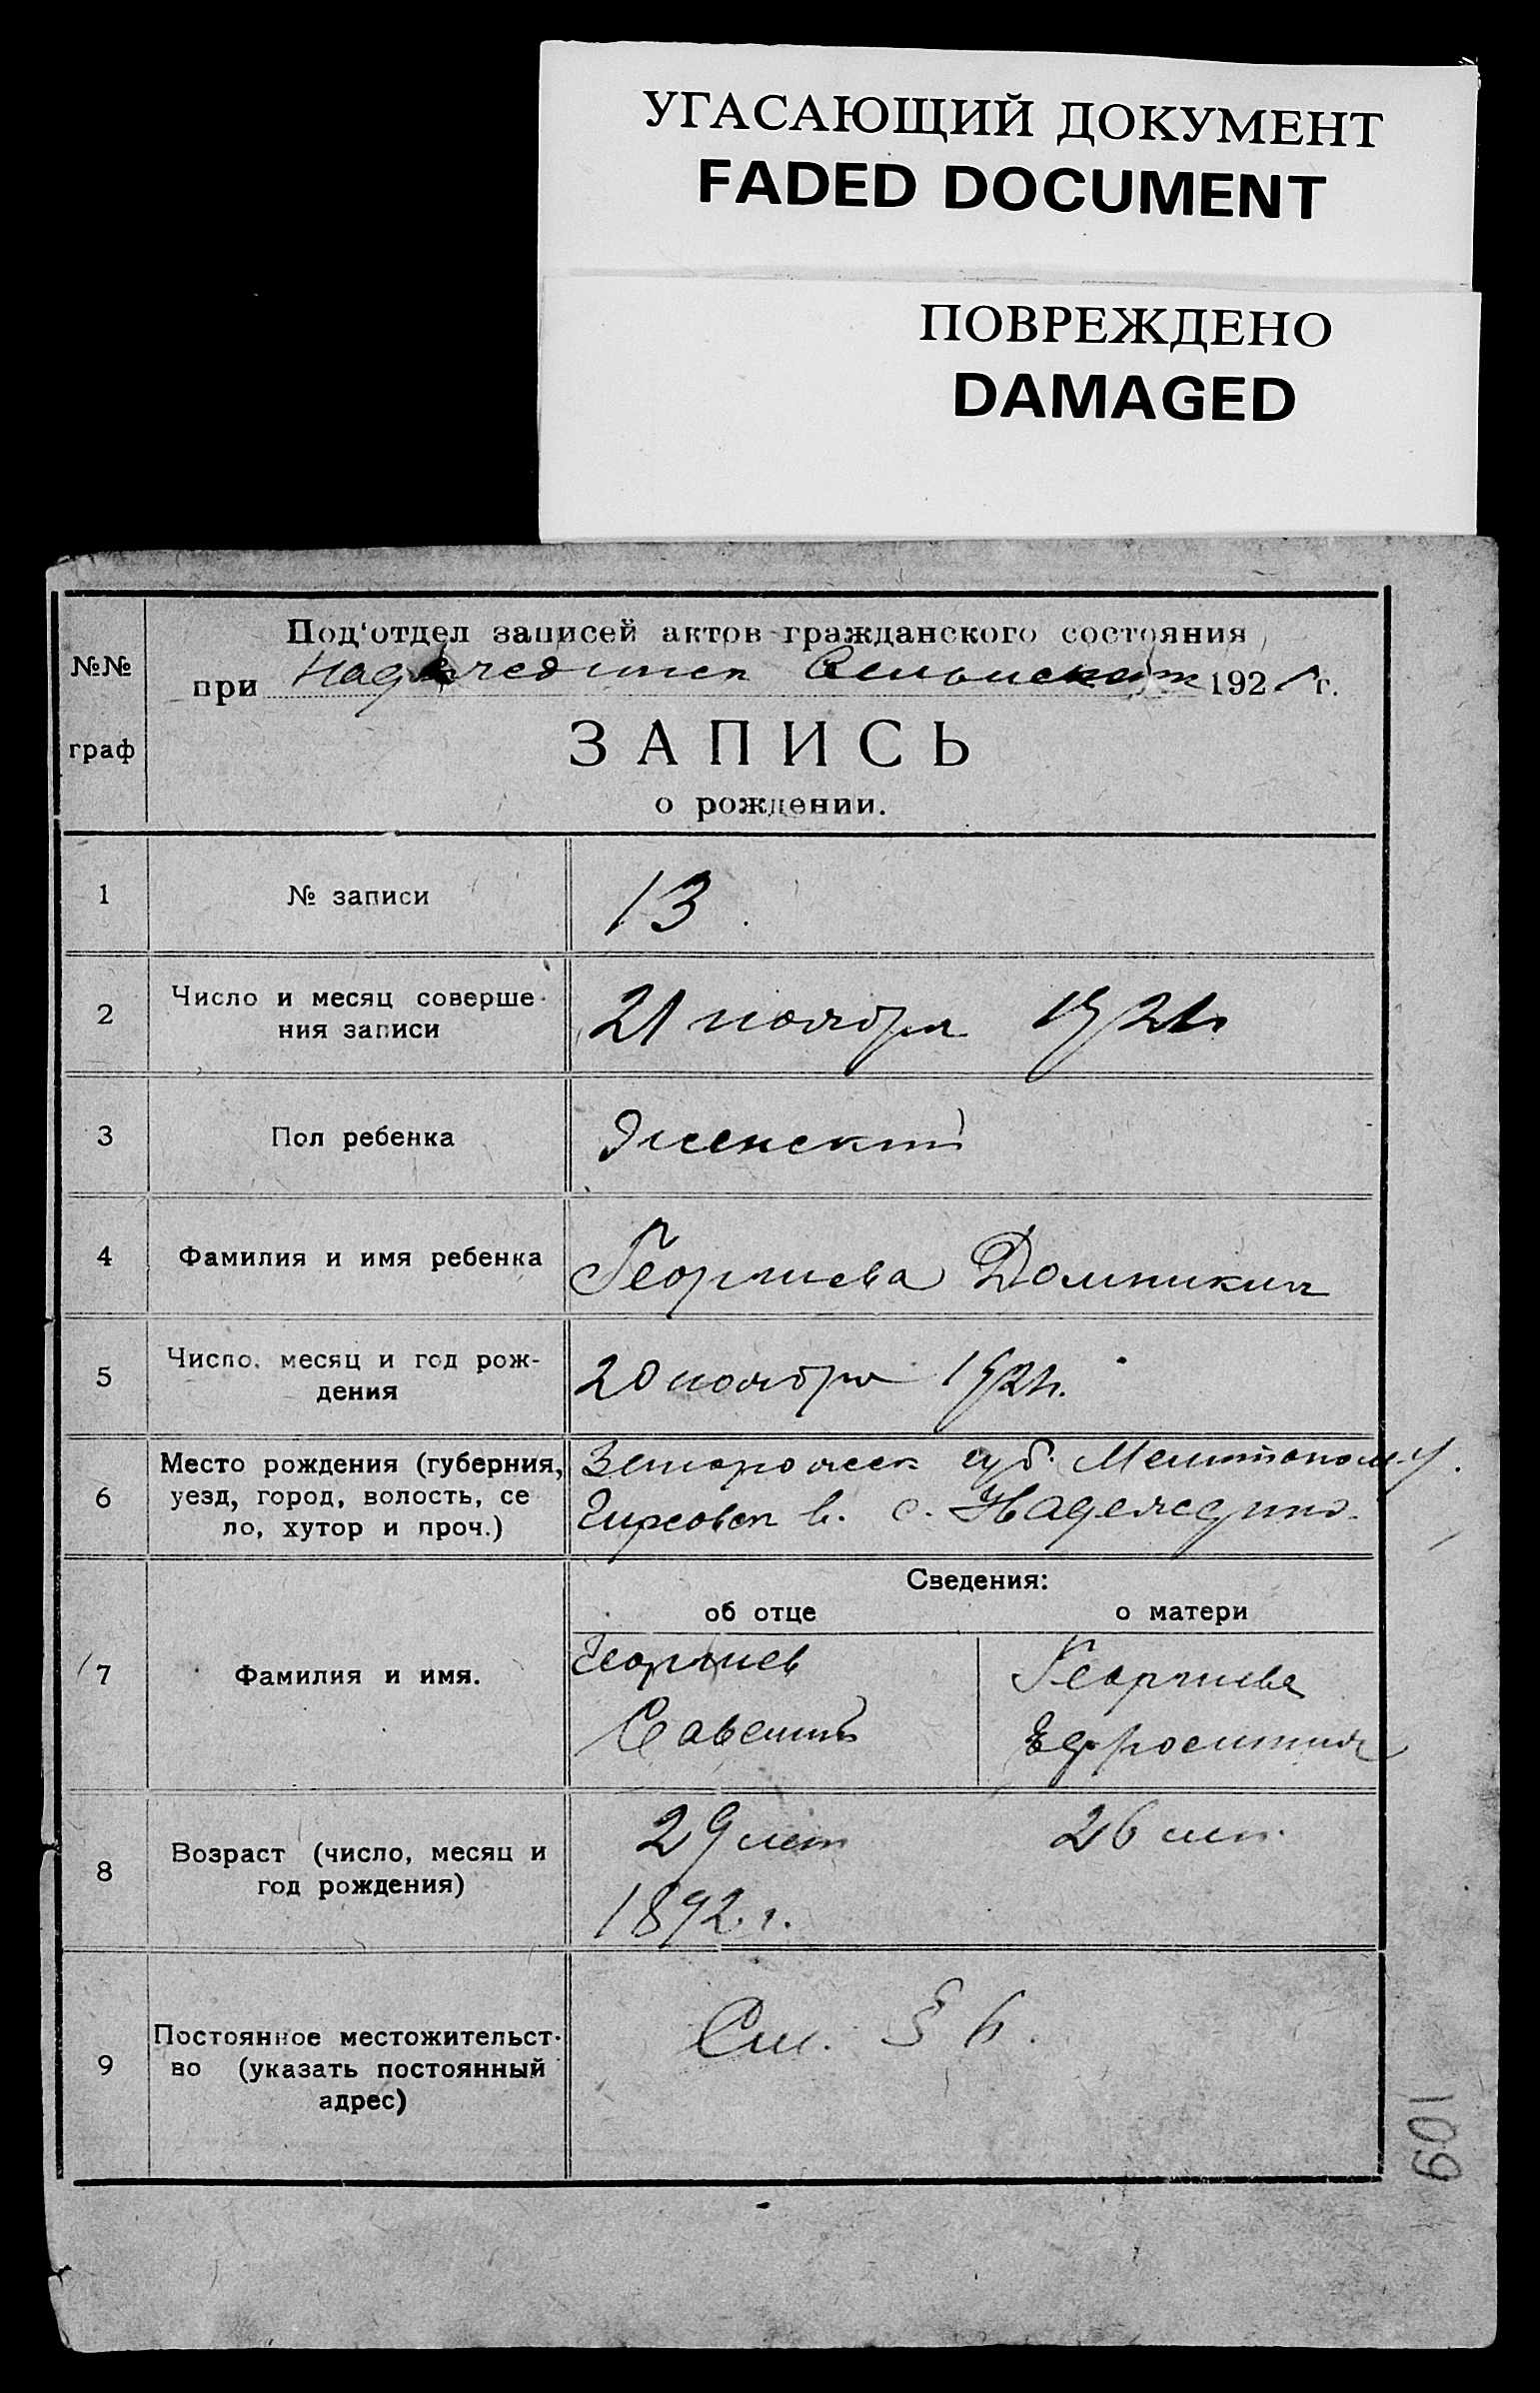 УГАСАЮЩИЙ ДОКУМЕНТ
FADED DOCUMENT
ПОВРЕЖДЕНО
DAMAGED
№№ граф
Под'отдел записей актов гражданского состояния
при 1921 г.
ЗАПИСЬ
о рождении.
1 № записи 13
2 Число и месяц соверше-
ния записи 21 ноября 1921
3 Пол ребенка Женский
4 Фамилия и имя ребенка Георгиева Домникия
5 Число, месяц и год рож-
дения 20 ноября 1921
6 Место рождения (губерния, уезд, город, волость, се
ло, хутор и проч.)
губ. Мелитопол. у.
в. с. Надеждино.
Сведения:
об отце о матери
7 Фамилия и имя. Георгиев Георгиева
Савелий Ефросиния
8 Возраст (число, месяц и
год рождения) 29 лет 26 лет.
1892 г.
9 Постоянное местожительст-
во (указать постоянный
адрес)
См. § 6.
109